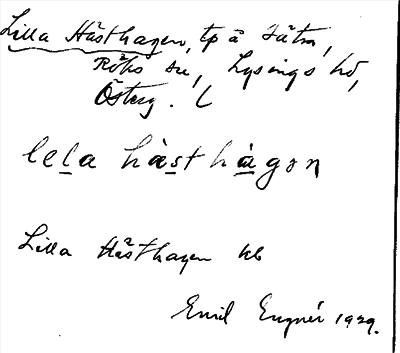 Lilla Hästhagen, tp å Sätra,
Röks sn, Lysings hd,
Österg.
lela hàsthàgon
Lilla Hästhagen kb
Emil Engnér 1929.